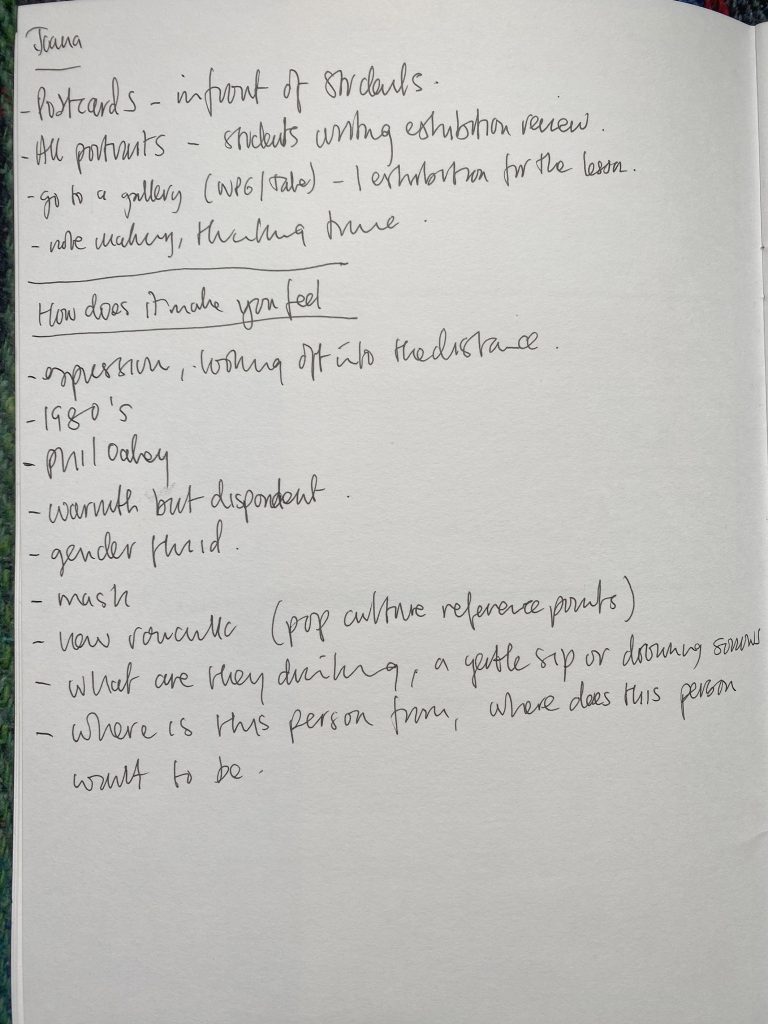 Joana
- Postcards - infront of students.
- All portraits - students writing exhibition review.
- go to a gallery (NPG/Tate) - 1 exhibition for the lesson.
- note making, thinking time.
How does it make you feel
- expression, looking off into the distance.
- 1980's
- Phil Oakey
- warmth but dispondent.
- gender fluid.
- mask
- new romantic (pop culture reference points)
- what are they drinking, a gentle sip or drowning sorrows
- where is this person from, where does this person
want to be.